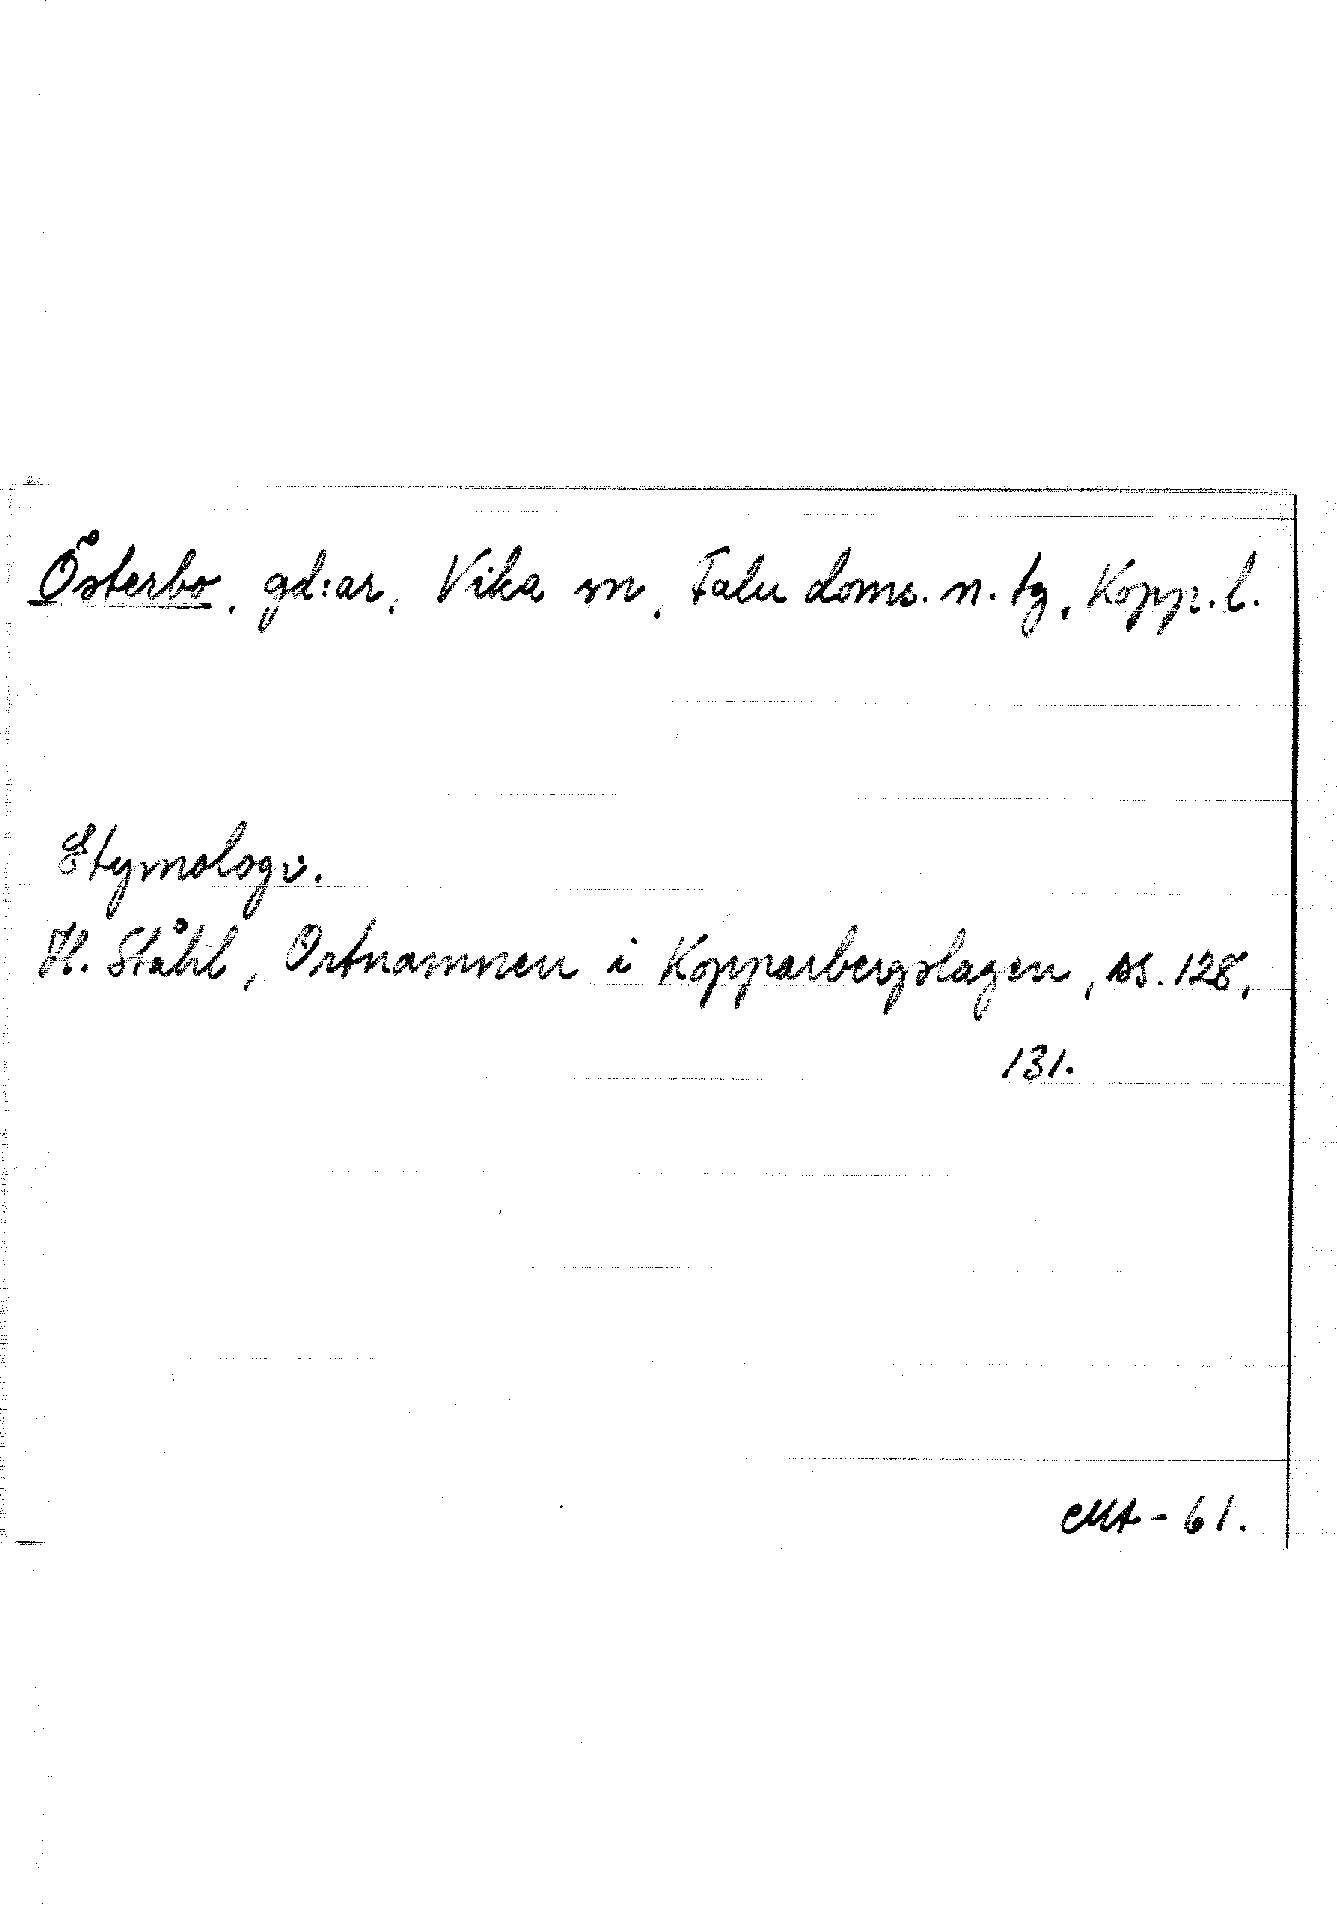 Österbo, gd:ar, Vika sn, Falu doms. n. tg, Kopp. l.
Etymologi.
H. Ståhl, Ortnamnen i Kopparbergslagen, ss. 128,
131.
MA - 61.